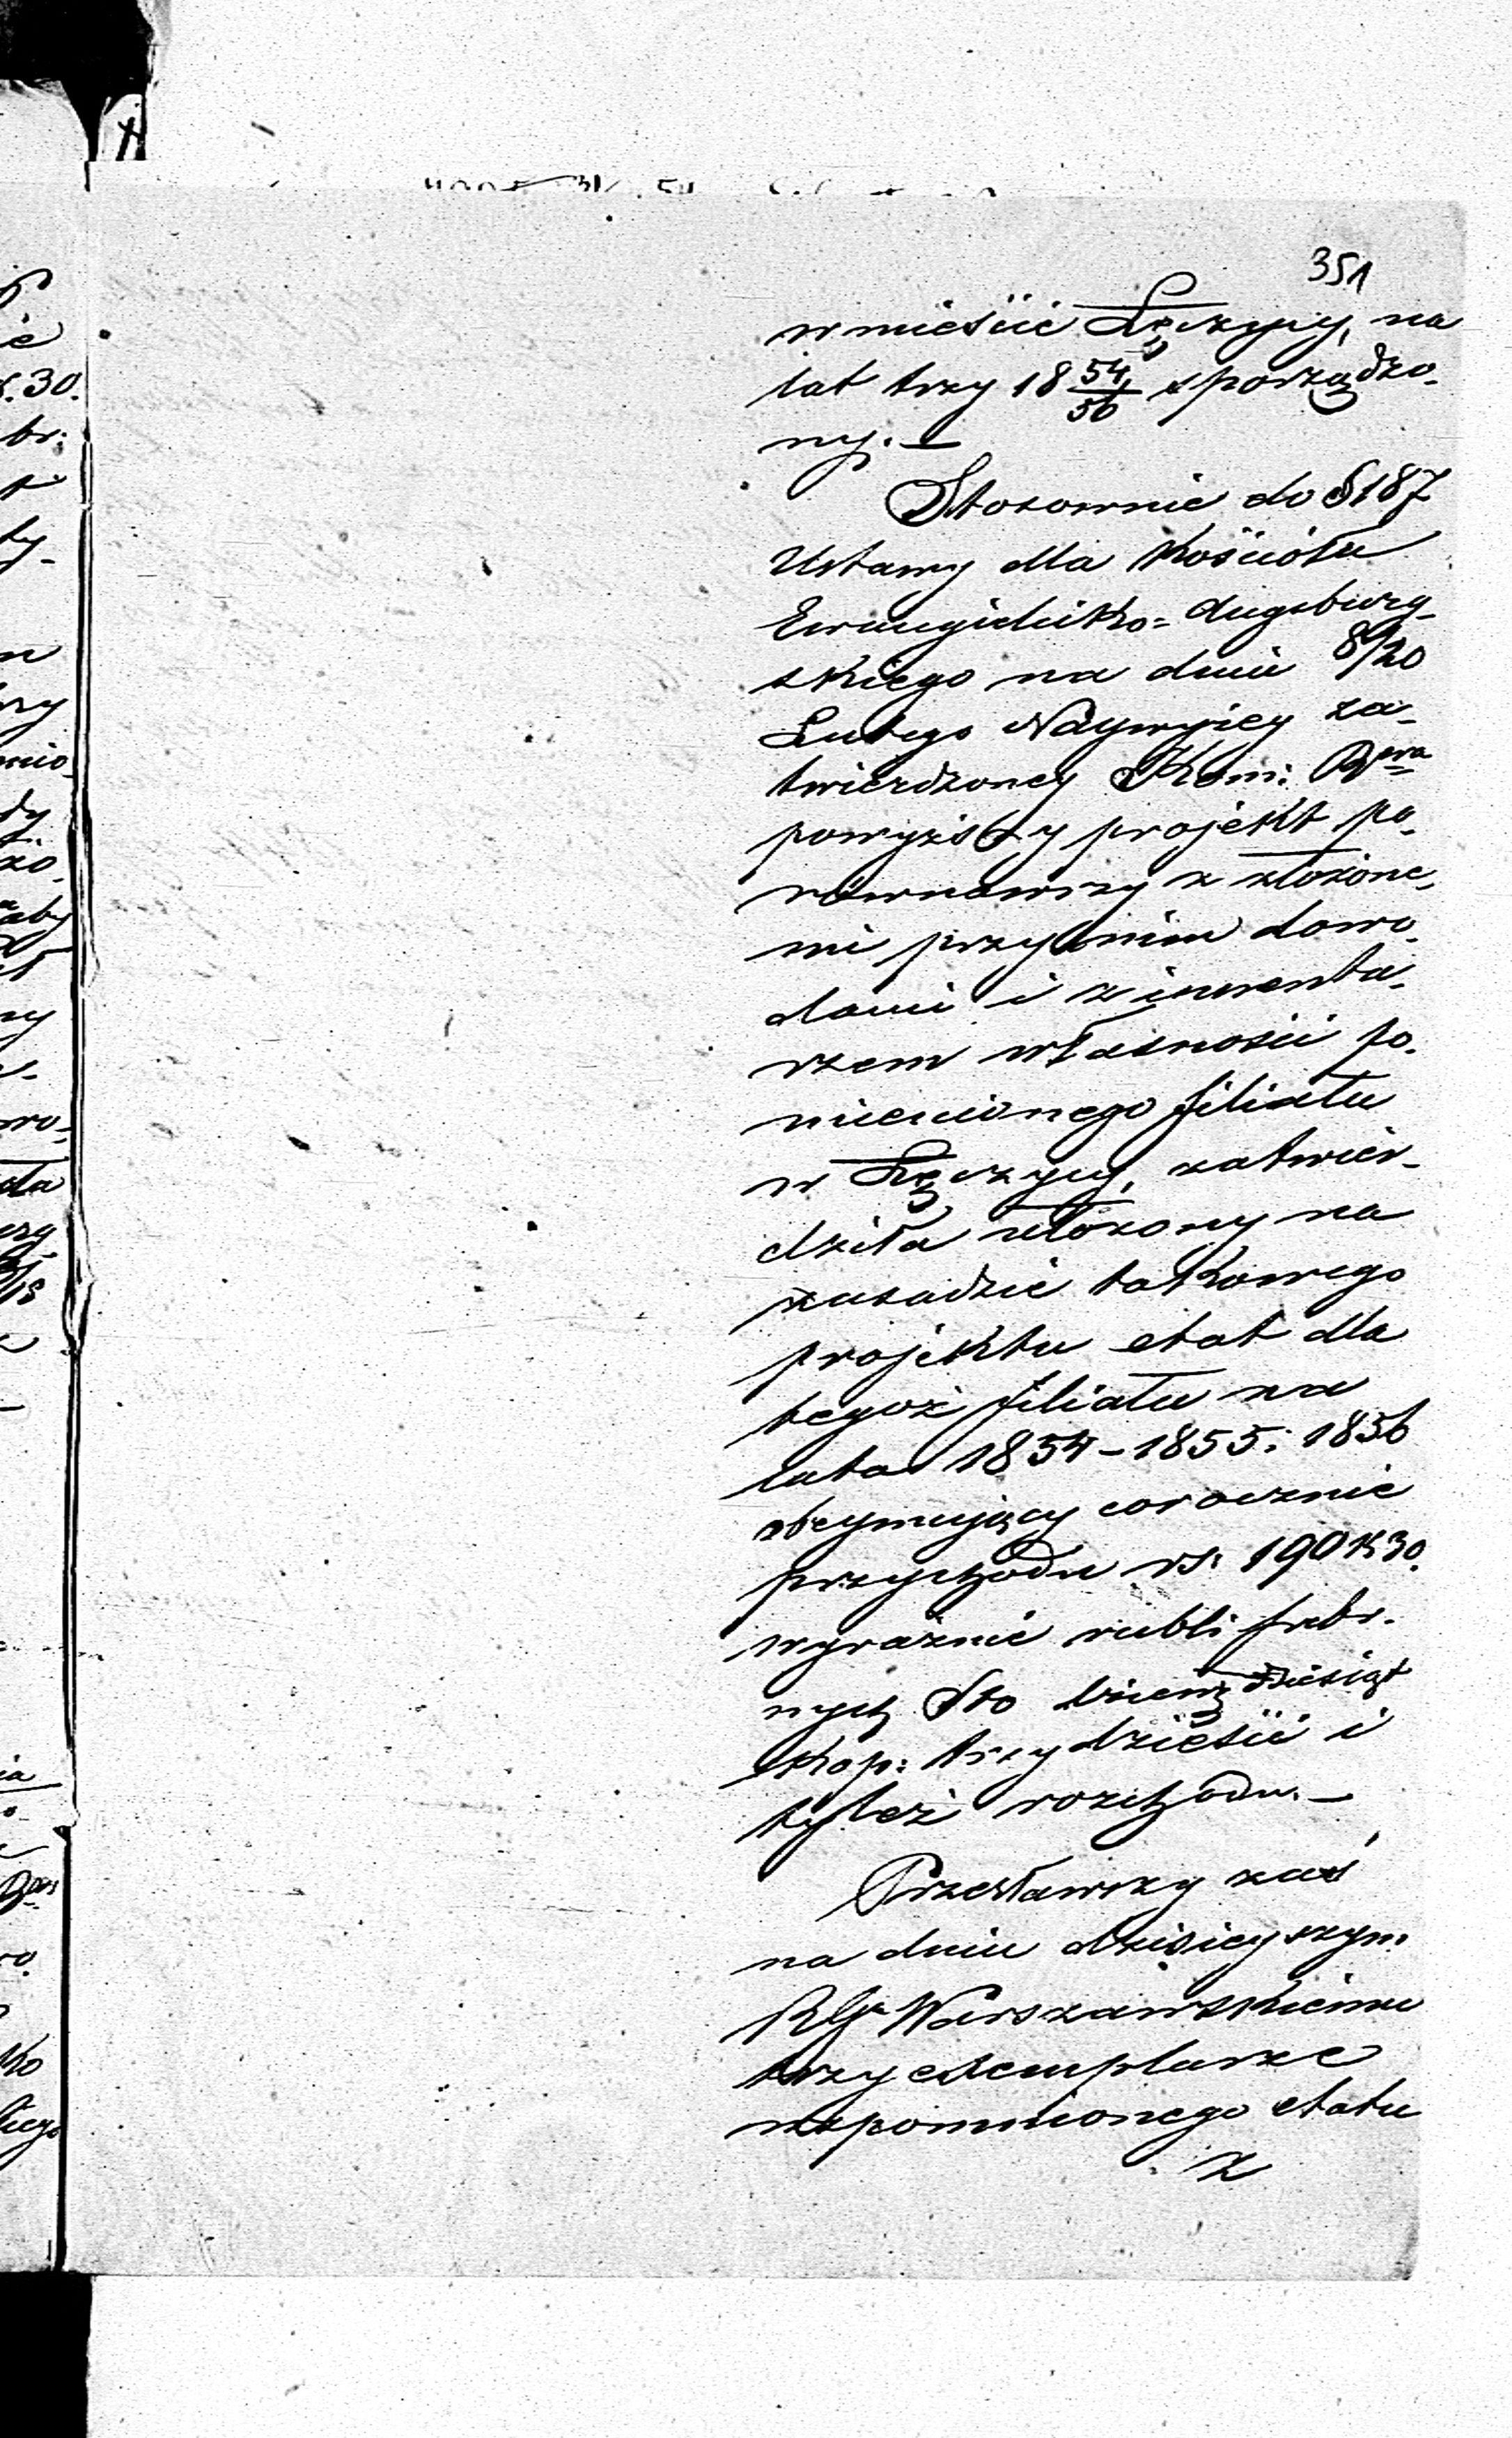 351
w mieście Łęczycy, na
lat trzy 18 54/56 sporządzo-
ny. —
Stosownie do § 187
Ustawy dla Kościoła
Ewangielicko-Augsburg-
skiego na dniu 8/20
Lutego Naywyżey za-
twierdzoney Kom: Rz
powyższy projekt po-
równawszy z złożone-
mi przy nim dowo-
dami i z inwenta-
rzem własności po-
mienionego filiału
w Łęczycy, zatwier-
dziła ułożony na
zasadzie takowego
projektu etat dla
tegoż filiału na
lata 1854-1855 i 1856
obeymujący corocznie
przychodu rs. 190 k 30.
wyraźnie rubli srebr-
nych Sto dziewięćdziesiąt
kop: trzydzieści i
tyleż rozchodu. —
Przesławszy zaś
na dniu dzisieyszym
RG Warszawskiemu
trzy exemplarze
wspomnionego etatu
z
30.
br:
ty-
aby